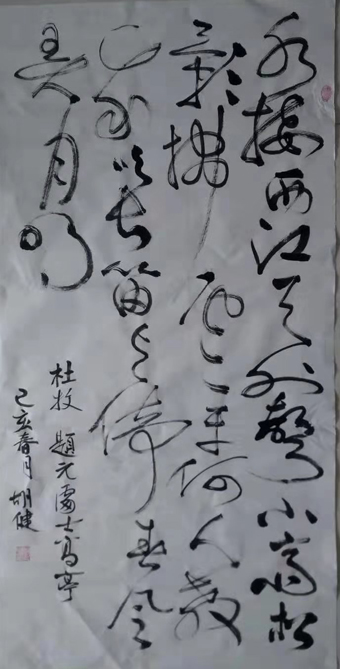 水接西江天外聲小斋松
影拂云平何人教
我吹长笛与倚春风
弄月明
杜牧 題元處士高亭
己亥春月 胡健